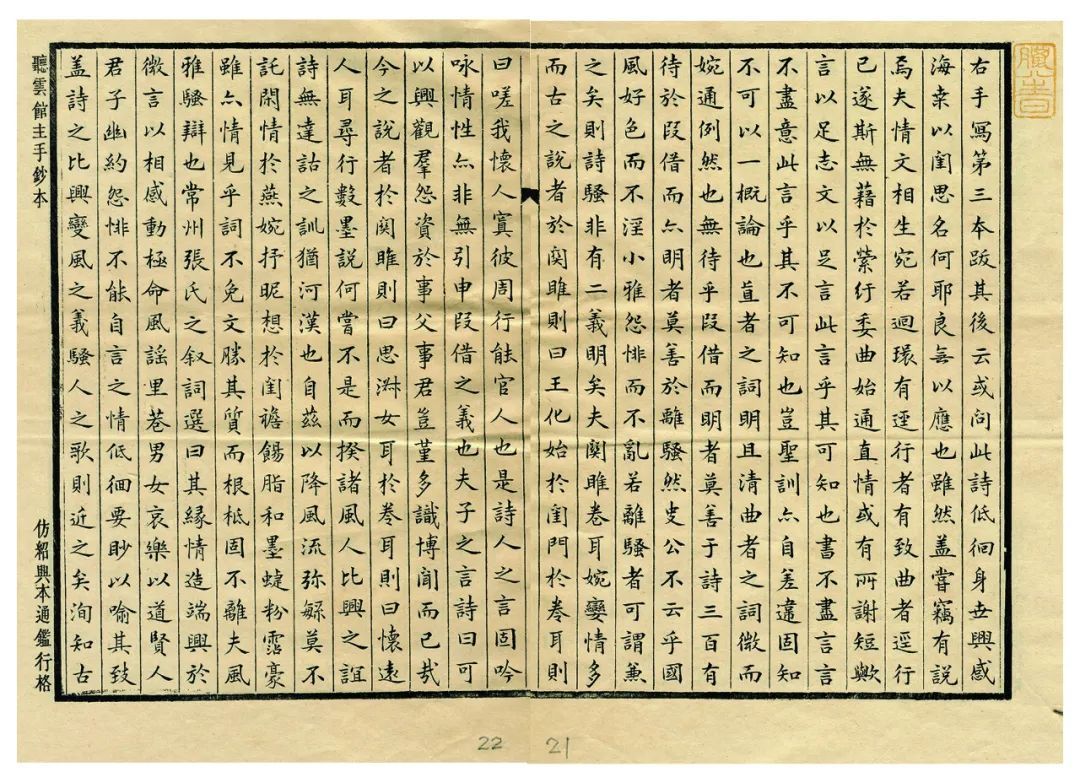 右手寫第三本跋其後云或问此詩低徊身世興感
海桑以閨思名何耶良無以應也雖然盖嘗竊有説
焉夫情文相生宛若迴環有逕行者有致曲者逕行
已遂斯無藉於縈紆委曲始通直情或有所謝短歟
言以足志文以足言此言乎其可知也書不盡言言
不盡意此言乎其不可知也豈聖訓亦自差違固知
不可以一概論也直者之詞明且清曲者之詞微而
婉通例然也無待乎叚借而明者莫善于詩三百有
待於叚借而亦明者莫善於離騷然史公不云乎國
風好色而不淫小雅怨悱而不亂若離騷者可謂兼
之矣則詩騷非有二義明矣夫関雎卷耳婉孌情多
而古之説者於関雎則曰王化始於閨門於卷耳則
曰嗟我懷人寘彼周行能官人也是詩人之言固吟
咏情性亦非無引申叚借之義也夫子之言詩曰可
以興觀羣怨資於事父事君豈堇多識博聞而已哉
今之説者於関雎則曰思淋女耳於卷耳則曰懷遠
人耳尋行數墨説何嘗不是而揆諸風人比興之誼
詩無達詁之訓猶河漢也自茲以降風流弥緜莫不
託閑情於燕婉抒昵想於閨襜餳脂和墨蜨粉霑豪
雖亦情見乎詞不免文勝其質而根柢固不離夫風
雅騷辯也常州張氏之叙詞選曰其緣情造端興於
微言以相感動極命風謡里巷男女哀樂以道賢人
君子幽約怨悱不能自言之情低徊要眇以喻其致
盖詩之比興變風之義騷人之歌則近之矣洵知古
聽雲館主手鈔本
仿紹興本通鑑行格
22
21